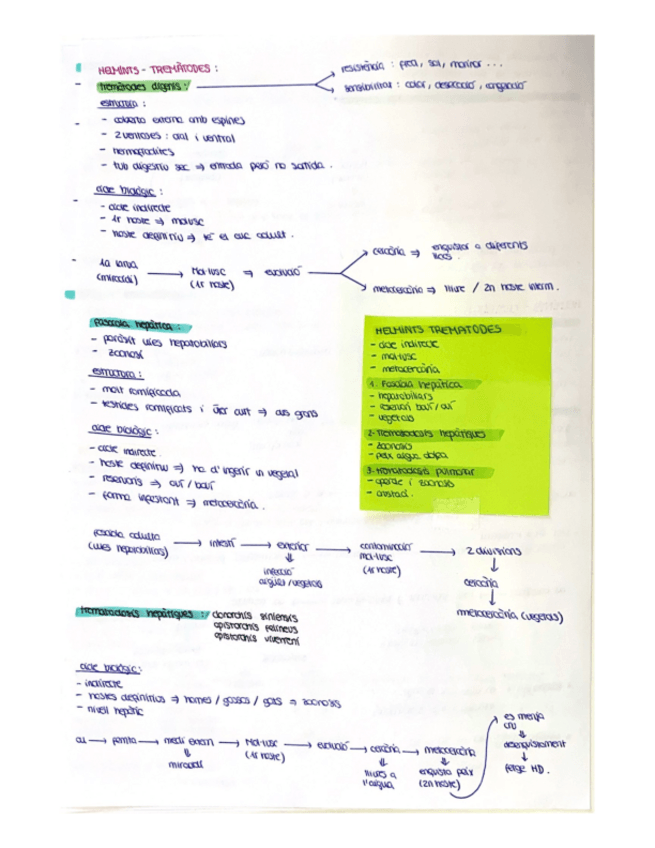 HELMINTS - TREMÀTODES :
resistència : fred, sol, marinar ...
tremàtodes digenis :
sensibilitat : calor, dessecació, congelació
estructura :
- coberta externa amb espines
- 2 ventoses : oral i ventral
- hermafrodites
- tub digestiu sec ⇒ entrada però no sortida .
cicle biològic :
- cicle indirecte
- 1r hoste ⇒ mol·lusc
- hoste definitiu ⇒ té el cuc adult .
1a larva → Mol·lusc ⇒ evolució
(miracidi) (1r hoste)
cercària ⇒ enquistar a diferents llocs .
metacercària ⇒ lliure / 2n hoste interm .
Fasciola hepàtica :
- paràsit vies hepatobiliars
- zoonosi
estructura :
- molt ramificada
- testicles ramificats i úter curt ⇒ ous grans
cicle biològic :
- cicle indirecte
- hoste definitiu ⇒ ha d'ingerir un vegetal
- reservoris ⇒ oví / boví
- forma infestant ⇒ metacercària .
HELMINTS TREMATODES
- cicle indirecte
- mol·lusc
- metacercària
1. Fasciola hepàtica
- hepatobiliars
- reservori boví / oví
- vegetals
2. Trematodosis hepàtiques
- zoonosis
- peix aigua dolça
3. Trematodosis pulmonar
- zoonosis
- crustaci .
fasciola adulta → intestí → exterior → contaminació → 2 divisions
(vies hepatobiliars) mol·lusc
(1r hoste)
⇓
aigües / vegetals
↓
cercària
↓
metacercària (vegetals)
trematodosis hepàtiques : clonorchis sinensis
opistorchis felineus
opistorchis viverrini
cicle biològic :
- indirecte
- hostes definitius ⇒ homes / gossos / gats ⇒ zoonosis
- nivell hepàtic
ou → femta → medi extern → Mol·lusc → evolució → cercària → metacercària
(1r hoste)
⇓
miracidi
⇓
lliures a
l'aigua
⇓
enquista peix
(2n hoste)
es menja
cru
⇓
desenquistament
↓
fetge HD .